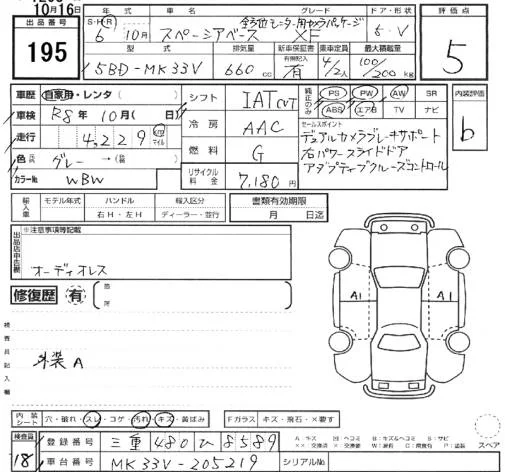 10月16日
出品番号
195
年式 車名 グレード ドア・形状 評価点
S・H・R
6 10月 スペーシアベース 全方位モニター用カメラパッケージ XF 5・V
5
型式 排気量 新車保証書 乗車定員 最大積載量
5BD-MK33V 660cc 有無記入 有 4/2人 100/200kg
車歴 自家用・レンタ ( )
車検 R8年10月( 日)
走行 4,229 km マイル
色 元 グレー →(替色 )
カラーNo. WBW
シフト IAT CVT
冷房 AAC
燃料 G
リサイクル料金 7,180円
純正のみ PS PW AW SR
ABS エアB TV ナビ
内装評価
b
セールスポイント
デュアルカメラブレーキサポート
右パワースライドドア
アダプティブクルーズコントロール
輸入車 モデル年式 ハンドル 輸入区分 書類有効期限
右H・左H ディーラー・並行 月 日迄
出品店申告欄 ※注意事項等記載
オーディオレス
修復歴 有 ( 箇所
検査員記入欄
外装A
A1 A1
内装シート 穴・破れ・スレ・コゲ・汚れ・キズ・黄ばみ Fガラス キズ・飛石・×要す
検査員
18
登録番号 三重 480 ひ 8589
車台番号 MK33V-205219 シリアルNo.
スペア